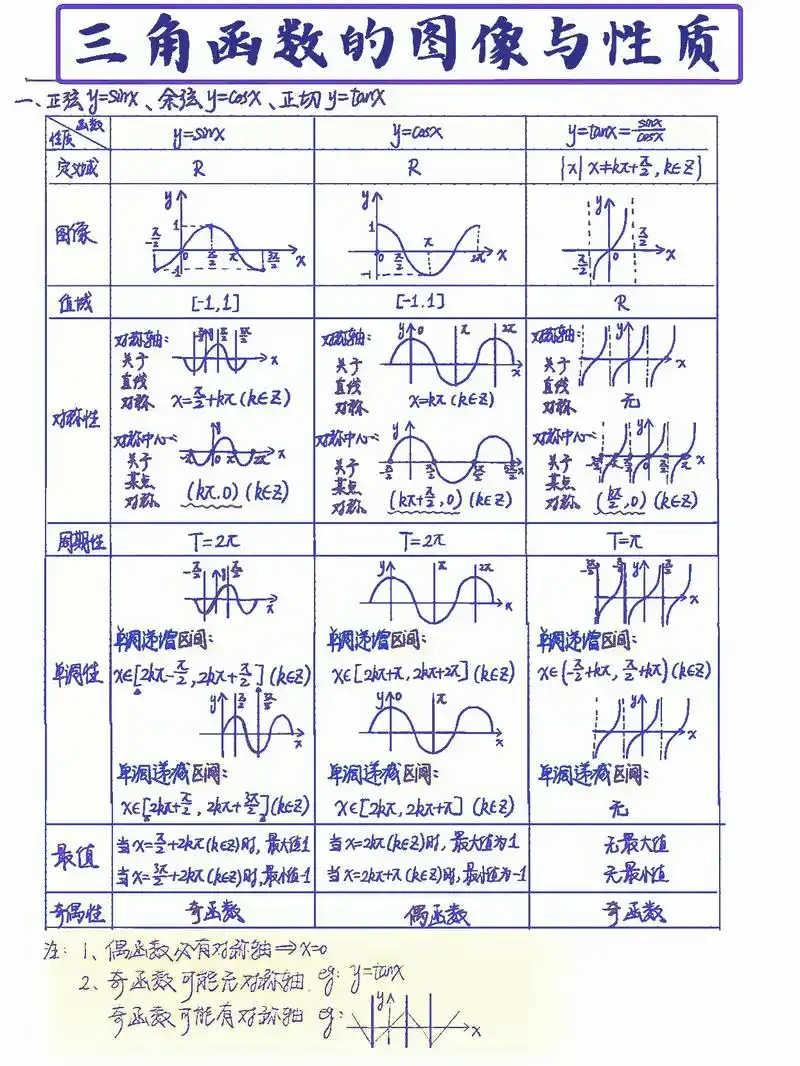 三角函数的图像与性质
一、正弦y=sinx、余弦y=cosx、正切y=tanx
函数
性质
y=sinx
y=cosx
y=tanx=sinx/cosx
定义域
R
R
{x|x≠kπ+π/2,k∈Z}
图像
y 1 -π/2 0 π/2 π 3π/2 x -1
y 1 0 π/2 π 2π x -1
y -π/2 0 π/2 x
值域
[-1,1]
[-1.1]
R
对称性
对称轴:
关于
直线
对称
x=π/2+kπ(k∈Z)
对称轴:
y 0 π 2π x
关于
直线
对称
x=kπ(k∈Z)
对称轴:
y x
关于
直线
对称
无
对称中心:
y -π 0 π 2π x
关于
某点
对称
(kπ.0)(k∈Z)
对称中心:
关于
某点
对称
(kπ+π/2,0)(k∈Z)
对称中心:
关于
某点
对称
(kπ/2,0)(k∈Z)
周期性
T=2π
T=2π
T=π
单调性
-π/2 y π/2 x
单调递增区间:
x∈[2kπ-π/2,2kπ+π/2](k∈Z)
y π/2 3π/2 x
单调递减区间:
x∈[2kπ+π/2,2kπ+3π/2](k∈Z)
y π 2π x
单调递增区间:
x∈[2kπ+π,2kπ+2π](k∈Z)
y 0 π x
单调递减区间:
x∈[2kπ,2kπ+π](k∈Z)
单调递增区间:
x∈(-π/2+kπ,π/2+kπ)(k∈Z)
y x
单调递减区间:
无
最值
当x=π/2+2kπ(k∈Z)时,最大值1
当x=3π/2+2kπ(k∈Z)时,最小值-1
当x=2kπ(k∈Z)时,最大值为1
当x=2kπ+π(k∈Z)时,最小值为-1
无最大值
无最小值
奇偶性
奇函数
偶函数
奇函数
注:1、偶函数必有对称轴⇒x=0
2、奇函数可能无对称轴.eg:y=tanx
奇函数可能有对称轴 eg:
y x